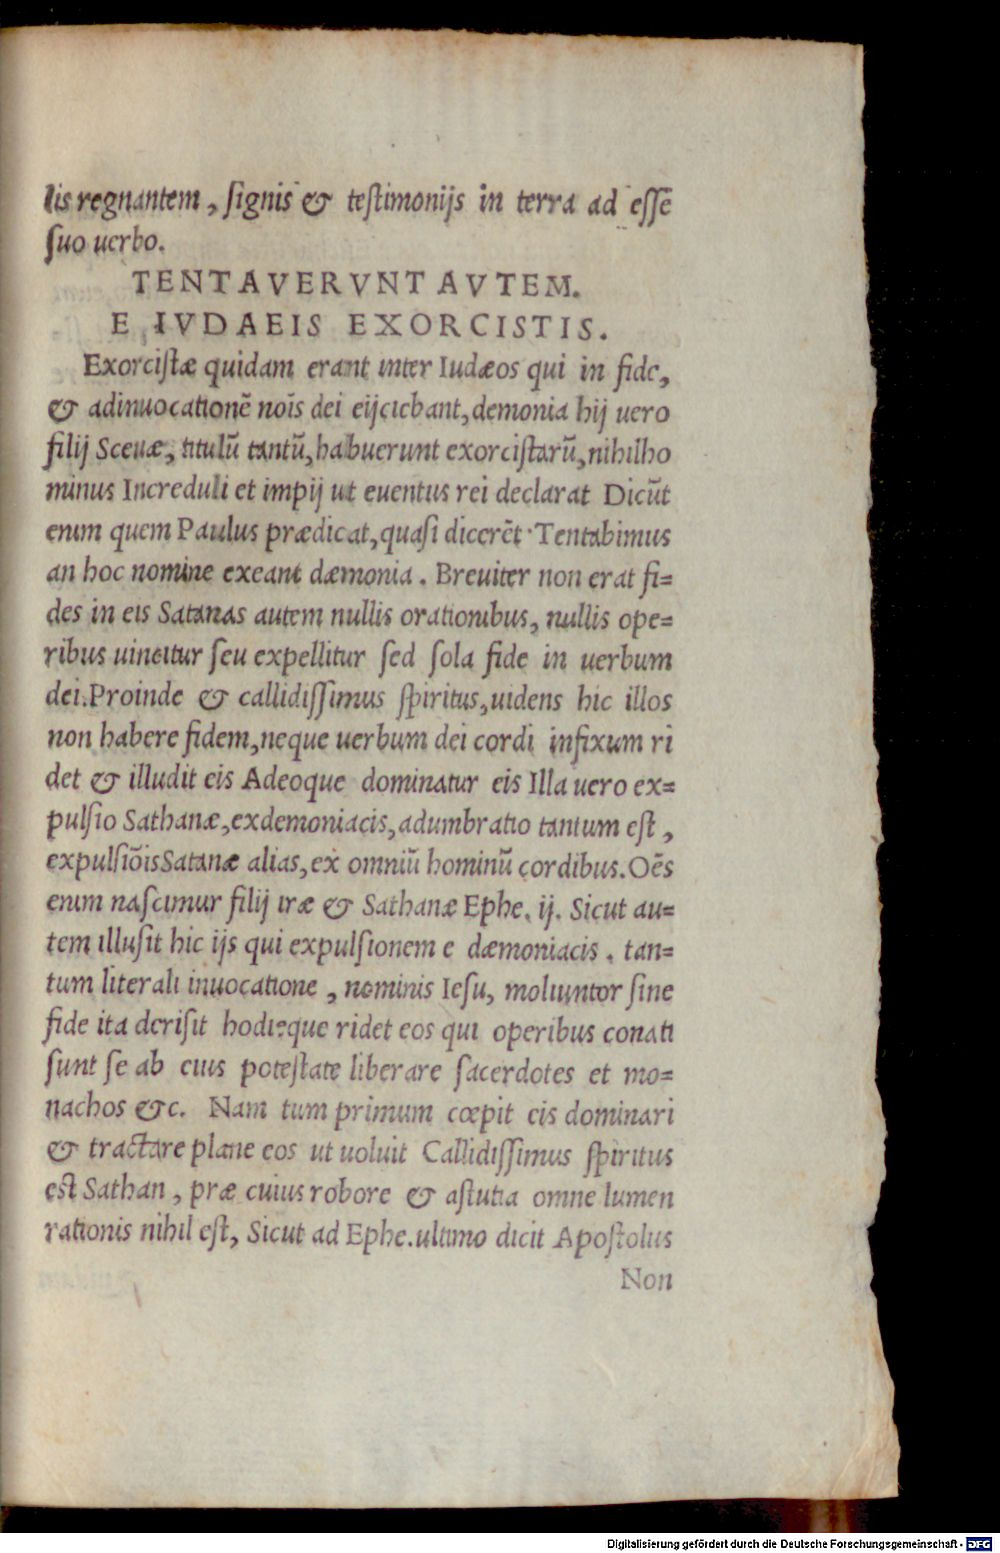 lis regnantem, ſignis & teſtimonijs in terra ad eſſē
ſuo uerbo.
TENTAVERVNT AVTEM.
E IVDAEIS EXORCISTIS.
Exorciſtæ quidam erant inter Iudæos qui in fide,
& adinuocationē noīs dei eijciebant, demonia hij uero
filij Sceuæ, titulū tantū, habuerunt exorciſtarū, nihilho
minus Increduli et impij ut euentus rei declarat Dicūt
enim quem Paulus prædicat, quaſi dicerēt· Tentabimus
an hoc nomine exeant dæmonia. Breuiter non erat fi=
des in eis Satanas autem nullis orationibus, nullis ope=
ribus uincitur ſeu expellitur ſed ſola fide in uerbum
dei. Proinde & callidiſſimus ſpiritus, uidens hic illos
non habere fidem, neque uerbum dei cordi infixum ri
det & illudit eis Adeoque dominatur eis Illa uero ex=
pulſio Sathanæ, exdemoniacis, adumbratio tantum eſt,
expulſiōis Satanæ alias, ex omniū hominū cordibus. Oēs
enim naſcimur filij iræ & Sathanæ Ephe. ij. Sicut au=
tem illuſit hic ijs qui expulſionem e dæmoniacis. tan=
tum literali inuocatione, nominis Ieſu, moliuntor ſine
fide ita deriſit hodieque ridet eos qui operibus conati
ſunt ſe ab eius poteſtate liberare ſacerdotes et mo=
nachos &c. Nam tum primum cœpit eis dominari
& tractare plane eos ut uoluit Callidiſſimus ſpiritus
est Sathan, præ cuius robore & aſtutia omne lumen
rationis nihil eſt, Sicut ad Ephe. ultimo dicit Apoſtolus
Non
Digitalisierung gefördert durch die Deutsche Forschungsgemeinschaft - DFG